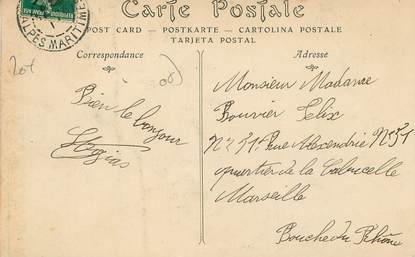 Carte Postale
POST CARD - POSTKARTE - CARTOLINA POSTALE
TARJETA POSTAL
Correspondance
Adresse
ALPES MARITIME
Bien le bonjour
Monsieur Madame
Bouvier Felix
Rue Alexendrie N° 31
quartier de la Cabucelle
Marseille
Bouche du Rhône